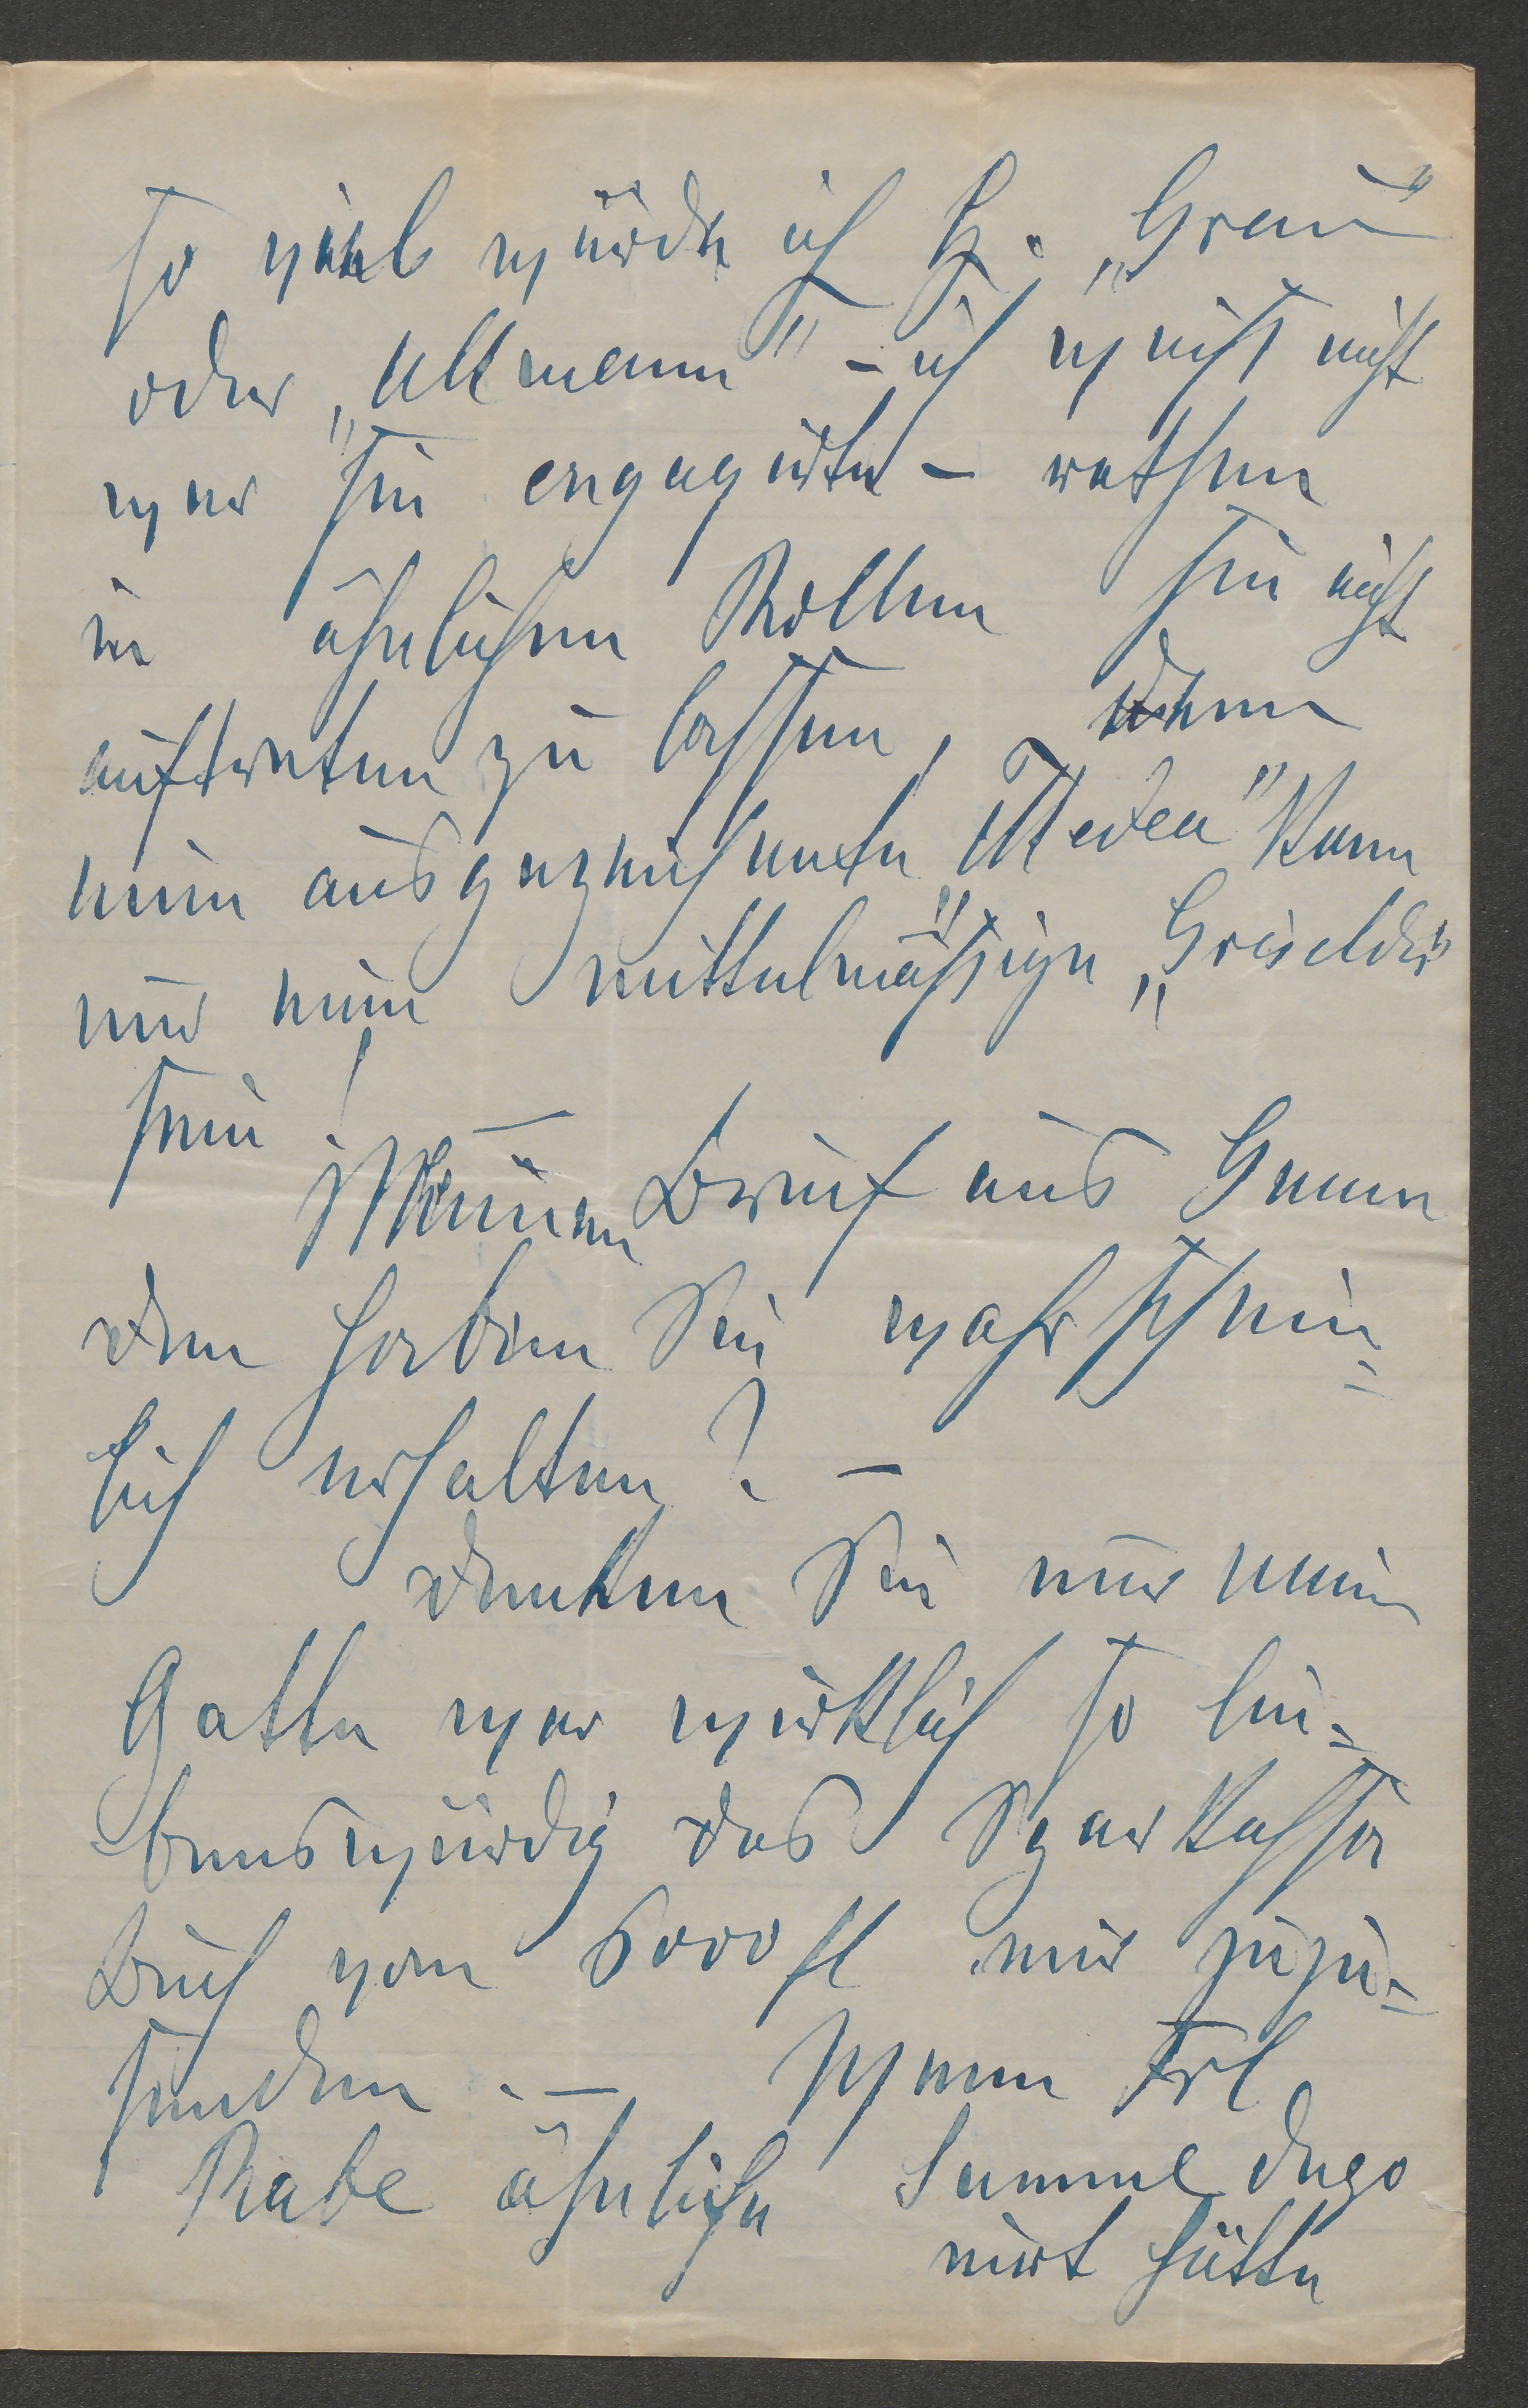 so viel würde ich H. „Grau"
oder „Ullmann" – ich weiß nicht
wer sie engagirte – rathen
in ähnlichen Rollen sie nicht
auftreten zu lassen, denn
eine ausgezeichnete „Medea" kann
nur eine mittelmäßige „Griseldis"
sein! –
Meinen Brief aus Gmun
den haben Sie wahrschein=
lich erhalten? –
Denken Sie nur mein
Gatte war wirklich so lie=
benswürdig das Sparkassa
Buch von 5000 fl mir zuzu=
senden. – Wenn Frl
Rabe ähnliche Summe depo
nirt hätte